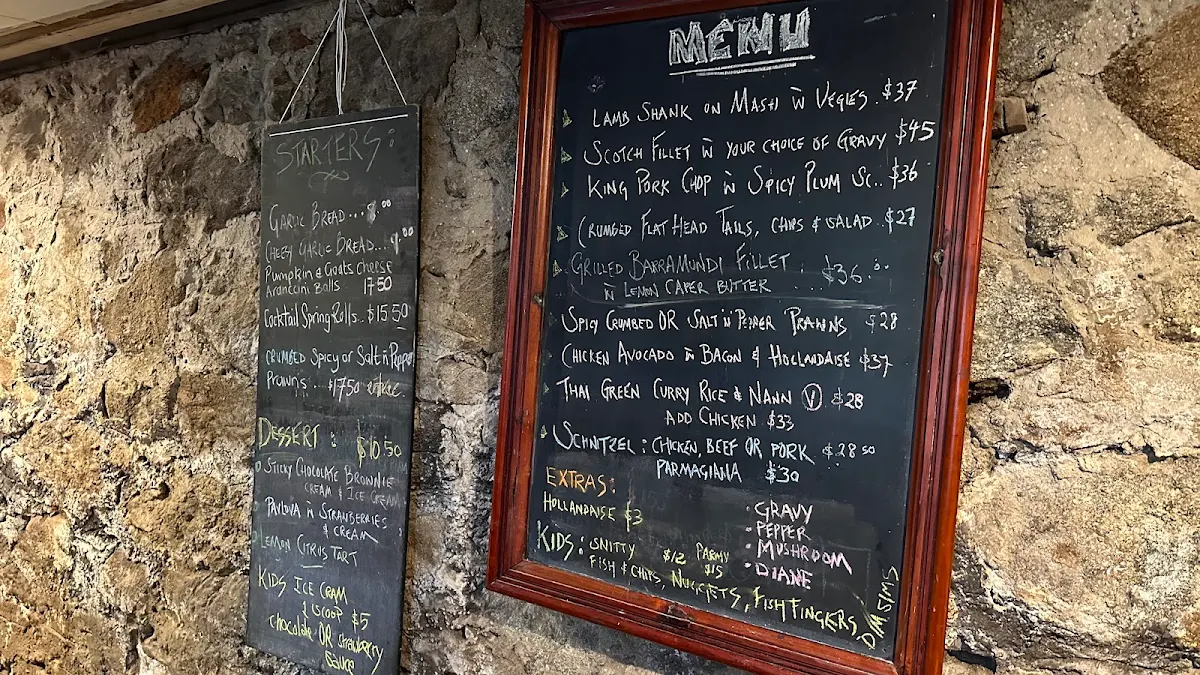 STARTERS:
GARLIC BREAD... 8.00
CHEESY GARLIC BREAD... 9.00
Pumpkin & Goats cheese
Arancini Balls 17.50
Cocktail Spring Rolls.. $15.50
CRUMBED Spicy or Salt n Pepper
Prawns... $17.50
DESSERT : $10.50
STICKY CHOCOLATE BROWNIE
CREAM & ICE CREAM
PAVLOVA ẅ STRAWBERRIES
& CREAM
LEMON CITRUS TART
KIDS ICE CRAM
1 SCOOP $5
chocolate OR strawberry
Sauce
MENU
LAMB SHANK ON MASH ẅ VEGIES. $37
SCOTCH FILLET ẅ YOUR CHOICE OF GRAVY $45
KING PORK CHOP ẅ SPICY PLUM SC.. $36
CRUMBED FLAT HEAD TAILS, CHIPS & SALAD.. $27
GRILLED BARRAMUNDI FILLET : $36.00
ẅ LEMON CAPER BUTTER
SPICY CRUMBED OR SALT 'N' PEPPER PRAWNS $28
CHICKEN AVOCADO ẅ BACON & HOLLANDAISE $37
THAI GREEN CURRY RICE & NANN (V) $28
ADD CHICKEN $33
SCHNITZEL : CHICKEN, BEEF OR PORK $28 50
PARMAGIANA $30
EXTRAS:
HOLLANDAISE $3
· GRAVY
· PEPPER
· MUSHROOM
· DIANE
KIDS: SNITTY $12 PARMY $15
FISH & CHIPS, NUGGETS, FISH FINGERS,
DIM SIMS